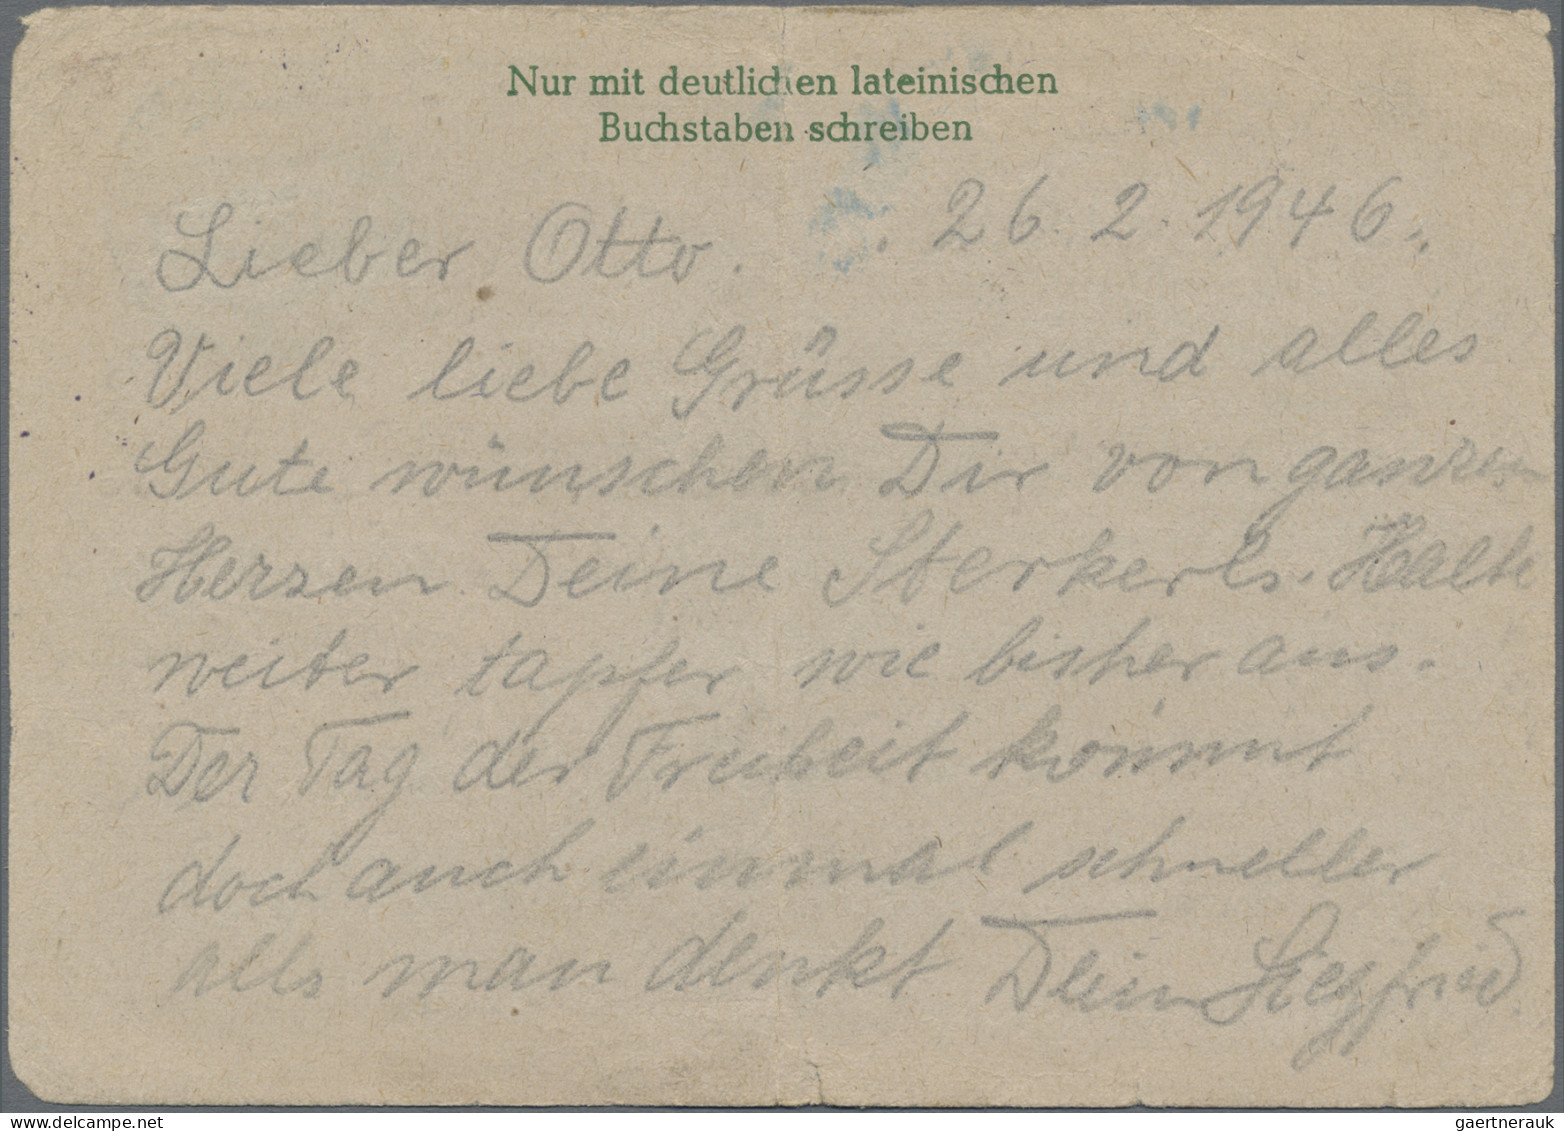 Nur mit deutlichen lateinischen
Buchstaben schreiben
Lieber Otto. 26.2.1946.
Viele liebe Grüsse und alles
Gute wünschen Dir von ganzen
Herzen Deine Sterkerls. Halte
weiter tapfer wie bisher aus.
Der Tag der Freiheit kommt
doch auch einmal schneller
alls man denkt Dein Siegfried.
gaertnerauk